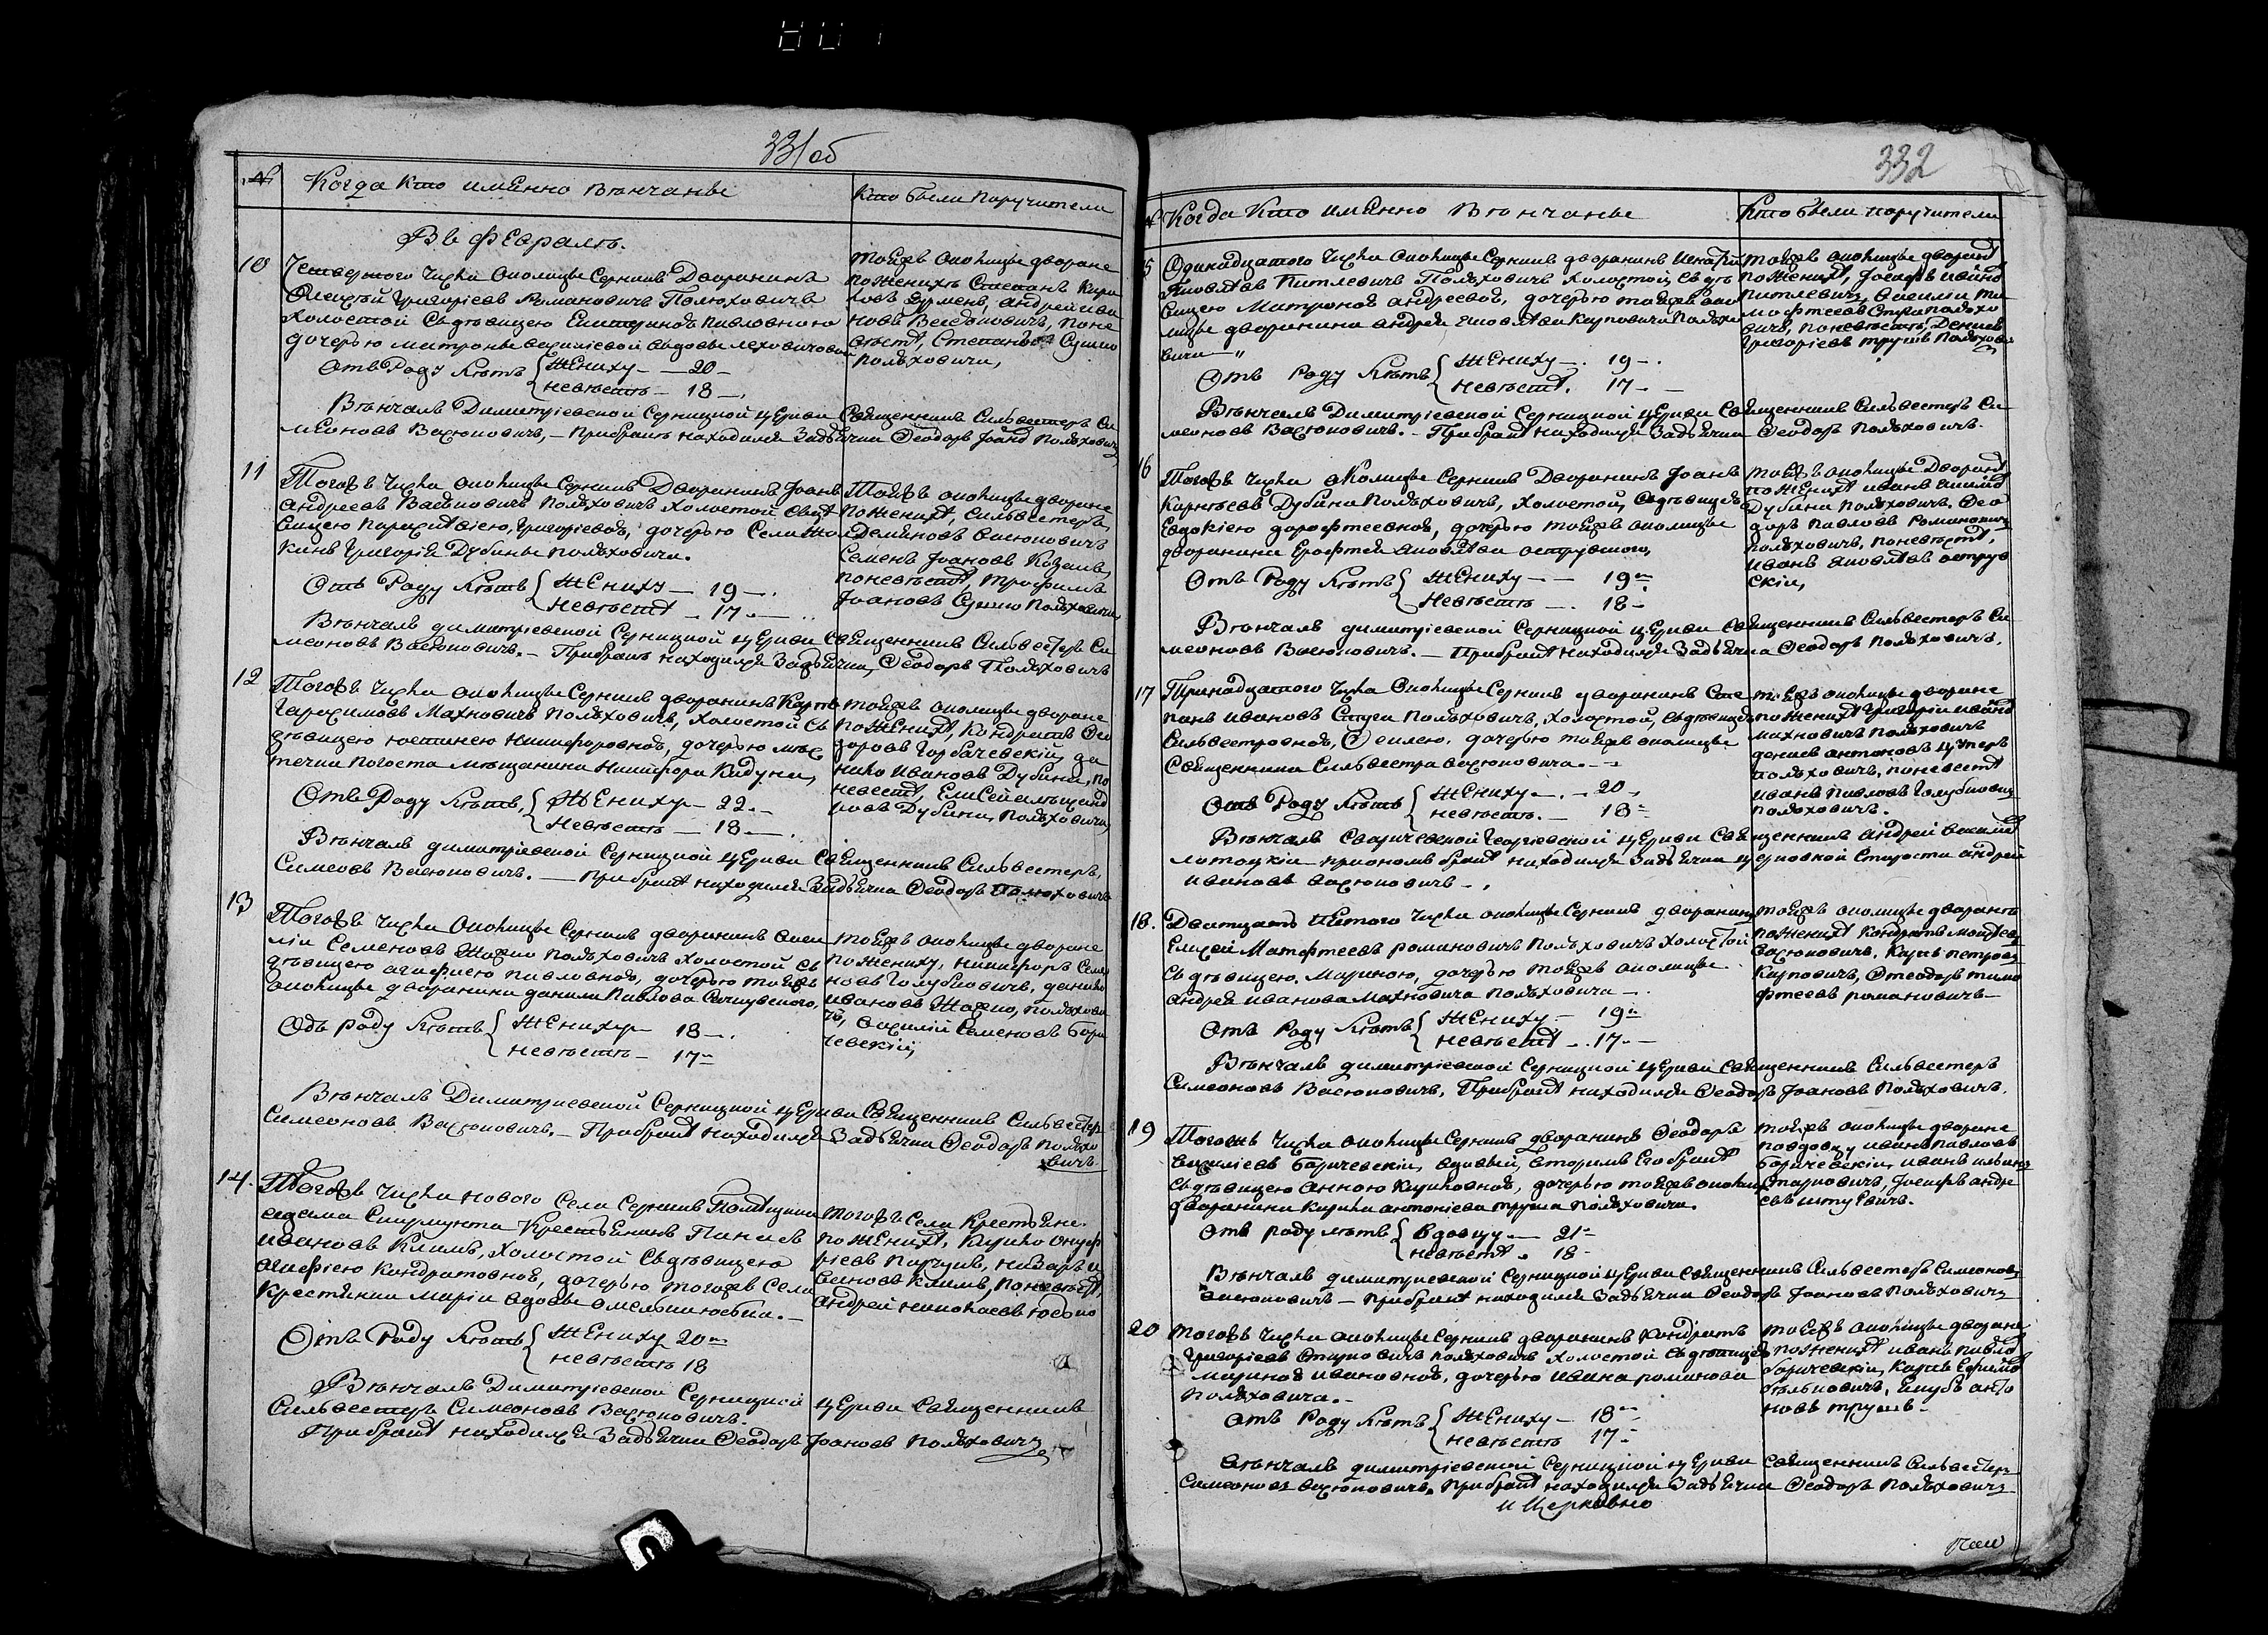 331об
№ Когда кто имЕнно вѣнчанъ
Кто были поручители
Въ фЕвралѣ.
10
Четвертого числа околицы Серникъ Дворянинъ
Алексѣй Григоріевъ Романовичъ Полюховичъ
холостой съ дѣвицею Екатериною Павловною
дочерью Матроны Василіевой вдовы
Отъ Роду лѣтъ { ЖЕниху — 20 —
невѣстѣ — 18 —
Вѣнчалъ Димитріевской Серницкой цЕркви СвященникЪ Сильвестеръ Си
меоновъ Васюковичъ, — При бракѣ находился За дьячка Ѳеодоръ Іоан Полѣховичъ
тойжъ околицы дворяне
по женихѣ Степанъ Кири
ловъ Думенъ, Андрей Ива
новъ Васюковичъ, по не
вѣстѣ, Степанъ Сушко
Полѣховичи,
11
Тогожъ числа околицы Серникъ Дворянинъ Іоанъ
Андреевъ Васюковичъ Полѣховичъ холостой съ дѣ
вицею Параскевіею, Григоріевою, дочерью
Григорія Дубины Полѣховича.
Отъ Роду лѣтъ { ЖЕниху — 19 —
Невѣстѣ — 17 —
Вѣнчалъ Димитріевской Серницкой цЕркви СвЯщенникъ Сильвестеръ Си
меоновъ Васюковичъ. — При бракѣ находился За дьячка, Ѳеодоръ Полѣховичъ
Тойжъ околицы дворяне
по женихѣ, Сильвестеръ
Демяновъ Васюковичъ
Семенъ Іоановъ Козакъ
по невѣстѣ, Трофимъ
Іоановъ Сушко Полѣховичи
12
Тогожъ числа околицы Серникъ дворянинъ Карпъ
Гарасимовъ Махновичъ Полѣховичъ, холостой съ
дѣвицею Юстиною Никифоровною, дочерью мѣс
течка Погоста мѣщанина Никифора Кидуна,
Отъ Роду лѣтъ, { ЖЕниху — 22 —
Невѣстѣ — 18 —
Вѣнчалъ Димитріевской Серницкой цЕркви СвЯщенникъ Сильвестеръ,
Симеоновъ Васюковичъ. — При бракѣ находился За дьячка Ѳеодоръ Полюховичъ
тойжъ околицы дворяне
по женихѣ, Кондратъ Ѳео
доровъ Горбачевскій, да
нило Ивановъ Дубина, по
невестѣ, Елисей
ковъ Дубина Полѣховичи,
13
Тогожъ числа Околицы Серникъ дворянинъ Васи
лій Семеновъ Жогло Полѣховичъ холостой съ
дѣвицею Агафиею Павловною, дочерью тойжъ
околицы дворянина Данилы Павлова
Одъ роду лѣтъ { ЖЕниху — 18 —
невѣстѣ — 17 —
Вѣнчалъ Димитриевской Серницкой цЕркви СвЯщенникъ Сильвестеръ
Симеоновъ Васюковичъ. — При бракѣ находился За дьячка Ѳеодоръ Полѣхо
вичъ
тойжъ околицы дворяне
по жениху, Никифоръ Семе
новъ Голубовичъ, Данило
Ивановъ Жогло, Полѣхови
чи, Василій Семеновъ Бори
чевскій,
14.
Тогожъ числа нового Села Серникъ Помѣщика
Адама Скирмунта КрестьЕнинъ Панасъ
Ивановъ Климъ, холостой съ дѣвицею
Агафіею Кондратовною, дочерью тогожъ Села
Крестянки Маріи вдовы
Отъ Роду лѣтъ { ЖЕниху 20 —
невѣстѣ 18
Вѣнчалъ Димитріевской Серницкой цЕркви СвЯщенникъ
Сильвестеръ Симеоновъ Васюковичъ.
При бракѣ находился За дьячка Ѳеодоръ Іоановъ Полѣховичъ
тогожъ Села Крестьяне
по женихѣ, Кирило Онуф
ріевъ Парчукъ, Назаръ И
вановъ Климъ, по невѣстѣ
Андрей Николаевъ
332
№ Когда Кто имЕнно вѣнчанъ
Кто были поручители
15
Одинадцатого числа околицы Серникъ дворянинъ Игнатій
Яковлевъ Питлевичъ Полѣховичъ холостой съ дѣ
вицею Матроною Андреевою, дочерью тойжъ око
лицы дворянина Андрея Яковлева Карповича Полѣхо
вича —
Отъ роду лѣтъ { ЖЕниху — 19 —
Невѣстѣ. 17 —
Вѣнчалъ Димитріевской Серницкой цЕркви СвЯщенникъ Сильвестеръ Си
меоновъ Васюковичъ. — При бракѣ находился За дьячка Ѳеодоръ Полѣховичъ.
тойжъ околицы дворяне
по женихѣ, Іосифъ Ивановъ
Питлевичъ, Василій Ти
мофеевъ Стуга Полѣхо
вичъ, по невѣстѣ, Денисъ
Григоріевъ Трушъ Полѣхови
16
Тогожъ числа околицы Серникъ Дворянинъ Іоанъ
Карпѣевъ Дубина Полѣховичъ, холостой, съ дѣвицею
Евдокіею Дорофтеевною, дочерью тойжъ околицы
дворянина Ерофтея Яковлева Островского,
Отъ Роду лѣтъ { ЖЕниху — 19 —
Невѣстѣ — 18 —
Вѣнчалъ Димитріевской Серницкой цЕркви СвЯщенникъ Сильвестеръ Си
меоновъ Васюковичъ. — При бракѣ находился За дьячка Ѳеодоръ Полѣховичъ.
тойжъ околицы Дворяне
по женихѣ Иванъ
Дубина Полѣховичъ. Ѳео
доръ Павловъ Романовичъ
Полѣховичъ, по невѣстѣ,
Иванъ Яковлевъ Остров
скій,
17
Тринадцатого числа Околицы Серникъ дворянинъ Сте
панъ Ивановъ Стуга Полѣховичъ, холостой, съ дѣвицею
Сильвестровною, Ѳеклею, дочерью тойжъ околицы
Священника Сильвестра Васюковича. —
Отъ Роду лѣтъ { ЖЕниху — 20 —
невѣстѣ — 18 —
Вѣнчалъ Сваричевской Георгіевской цЕркви СвЯщенникъ Андрей
Лотоцкій при ономъ бракѣ находился За дьячка церковной Староста Андрей
Ивановъ Васюковичъ —
тойжъ околицы дворяне
по женихѣ Григорій Ивановъ
Махновичъ Полѣховичъ
Денисъ Антоновъ
Полѣховичъ, по невестѣ
Иванъ Павловъ Голубовичъ
Полѣховичъ.
18.
Дватцать шестого числа околицы Серникъ дворянинъ
Елисей Матфтеевъ Романовичъ Полѣховичъ холостой
съ дѣвицею. Мариною, дочерью тойжъ околицы
Андрея Иванова Махновича Полѣховича —
Отъ Роду лѣтъ { ЖЕниху — 19 —
невѣстѣ — 17 —
Вѣнчалъ Димитріевской Серницкой цЕркви СвЯщенникъ Сильвестеръ
Симеоновъ Васюковичъ, При бракѣ находился Ѳеодоръ Іоановъ Полѣховичъ.
тойжъ околицы дворяне
по женихѣ Кондратъ
Васюковичъ, Карпъ Петровъ
Карповичъ, Ѳтеодоръ Тимо
фтеевъ Романовичъ —
19
Тогожъ числа околицы Серникъ дворянинъ Ѳеодоръ
Василіевъ Боричевскій, вдовый, вторимъ Его бракѣ
съ дѣвицею Анною Кириковною, дочерью тойжъ околицы
дворянина Кирика Антоніева Труша Полѣховича.
Отъ роду лѣтъ { вдовцу — 21 —
невѣстѣ — 18 —
Вѣнчалъ Димитриевской Серницкой цЕркви СвященникЪ Сильвестеръ Симеоновъ
Васюковичъ — При бракѣ находился За дьячка Ѳеодоръ Іоановъ Полѣховичъ
тойжъ околицы дворяне
по вдовцу Иванъ Павловъ
Боричевскій, Иванъ
Старковичъ, Іосифъ Андре
евъ
20
тогожъ числа околицы Серникъ дворянинъ Кондратъ
Григоріевъ Старковичъ Полѣховичъ холостой съ дѣвицею
Мариною Ивановною, дочерью Ивана Романова
Полѣховича. —
Отъ Роду лѣтъ { ЖЕниху — 18 —
невѣстѣ 17 —
Вѣнчалъ Димитріевской Серницкой цЕркви СвЯщенникъ Сильвестеръ
Симеоновъ Васюковичъ. При бракѣ находился За дьячка Ѳеодоръ Полѣховичъ
и Церковно
тойжъ околицы дворяне
по женихѣ Иванъ Павловъ
Боричевскій, Карпъ Ефимовъ
Якубъ Анто
новъ Трушъ —